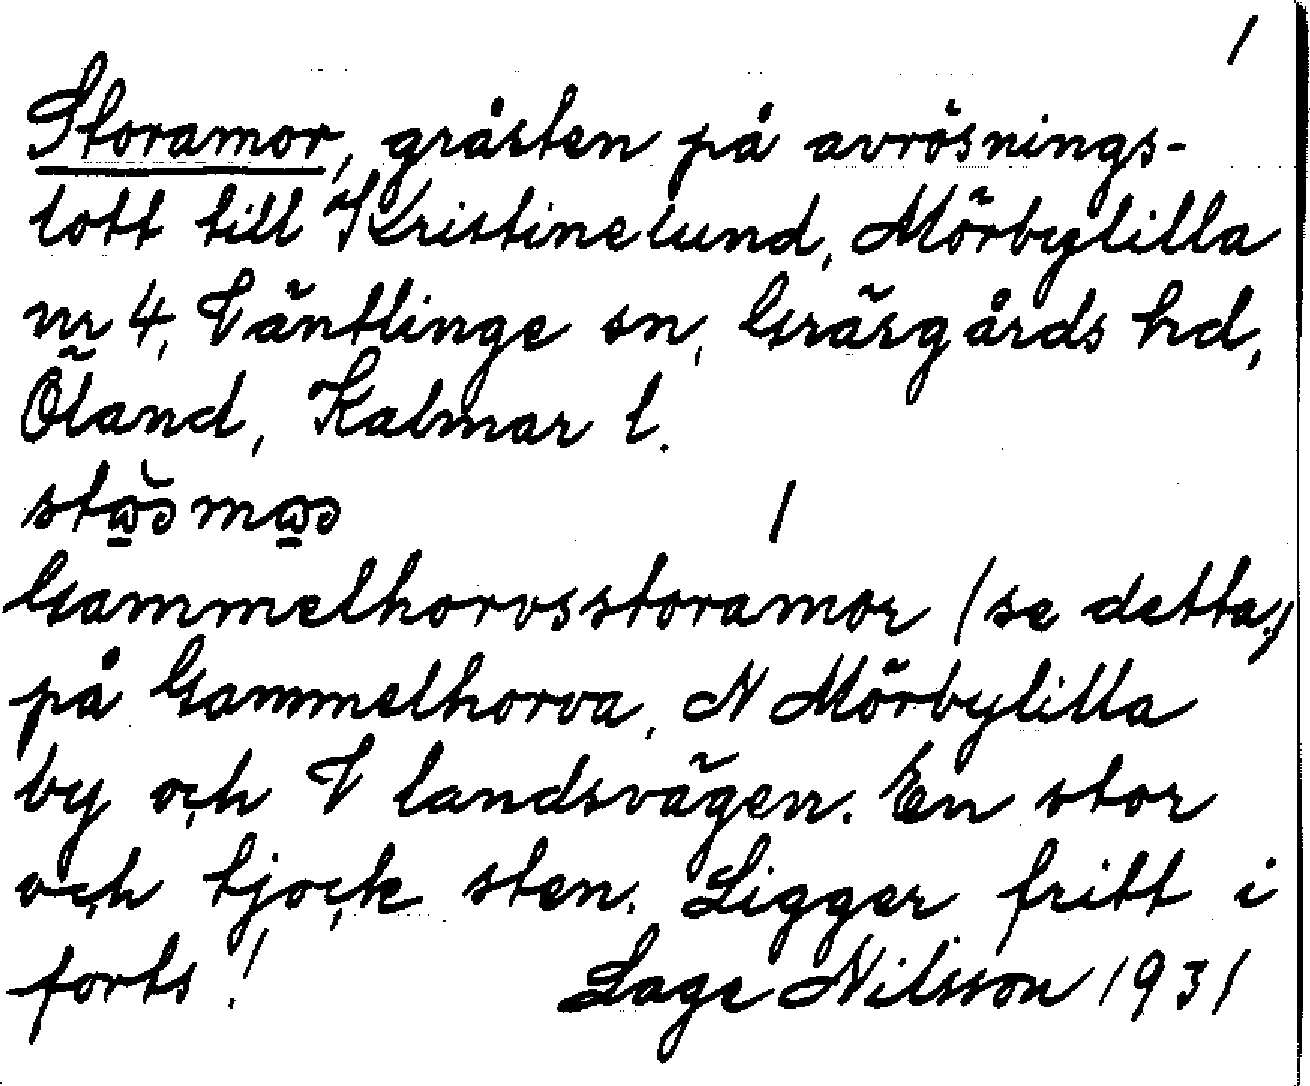 1
Storamor, gråsten på avrösnings-
lott till Kristinelund, Mörbylilla
nr 4, Väntlinge sn, Gräsgårds hd,
Öland, Kalmar l.
1
Gammelhorvsstoramor (se detta,)
på Gammelhorva, N Mörbylilla
by och V landsvägen. En stor
och tjock sten. Ligger fritt i
forts!
Sage Nilsson 1931